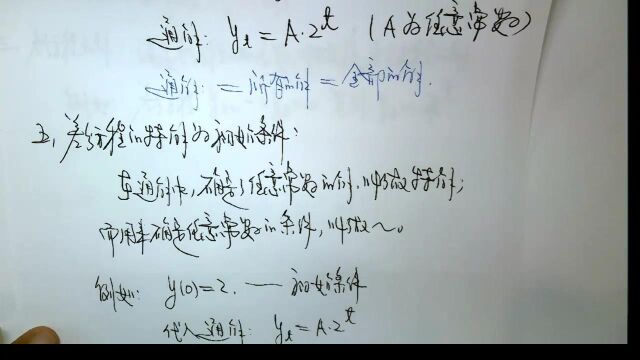 通解: yₜ = A·2ᵗ (A为任意常数)
通解: = 所有的解 = 全部的解.
五、差分方程的特解与初始条件:
在通解中, 确定了任意常数的解, 叫做特解;
而用来确定任意常数的条件, 叫做~。
例如: y(0)=2. — 初始条件
代入通解: yₜ = A·2ᵗ